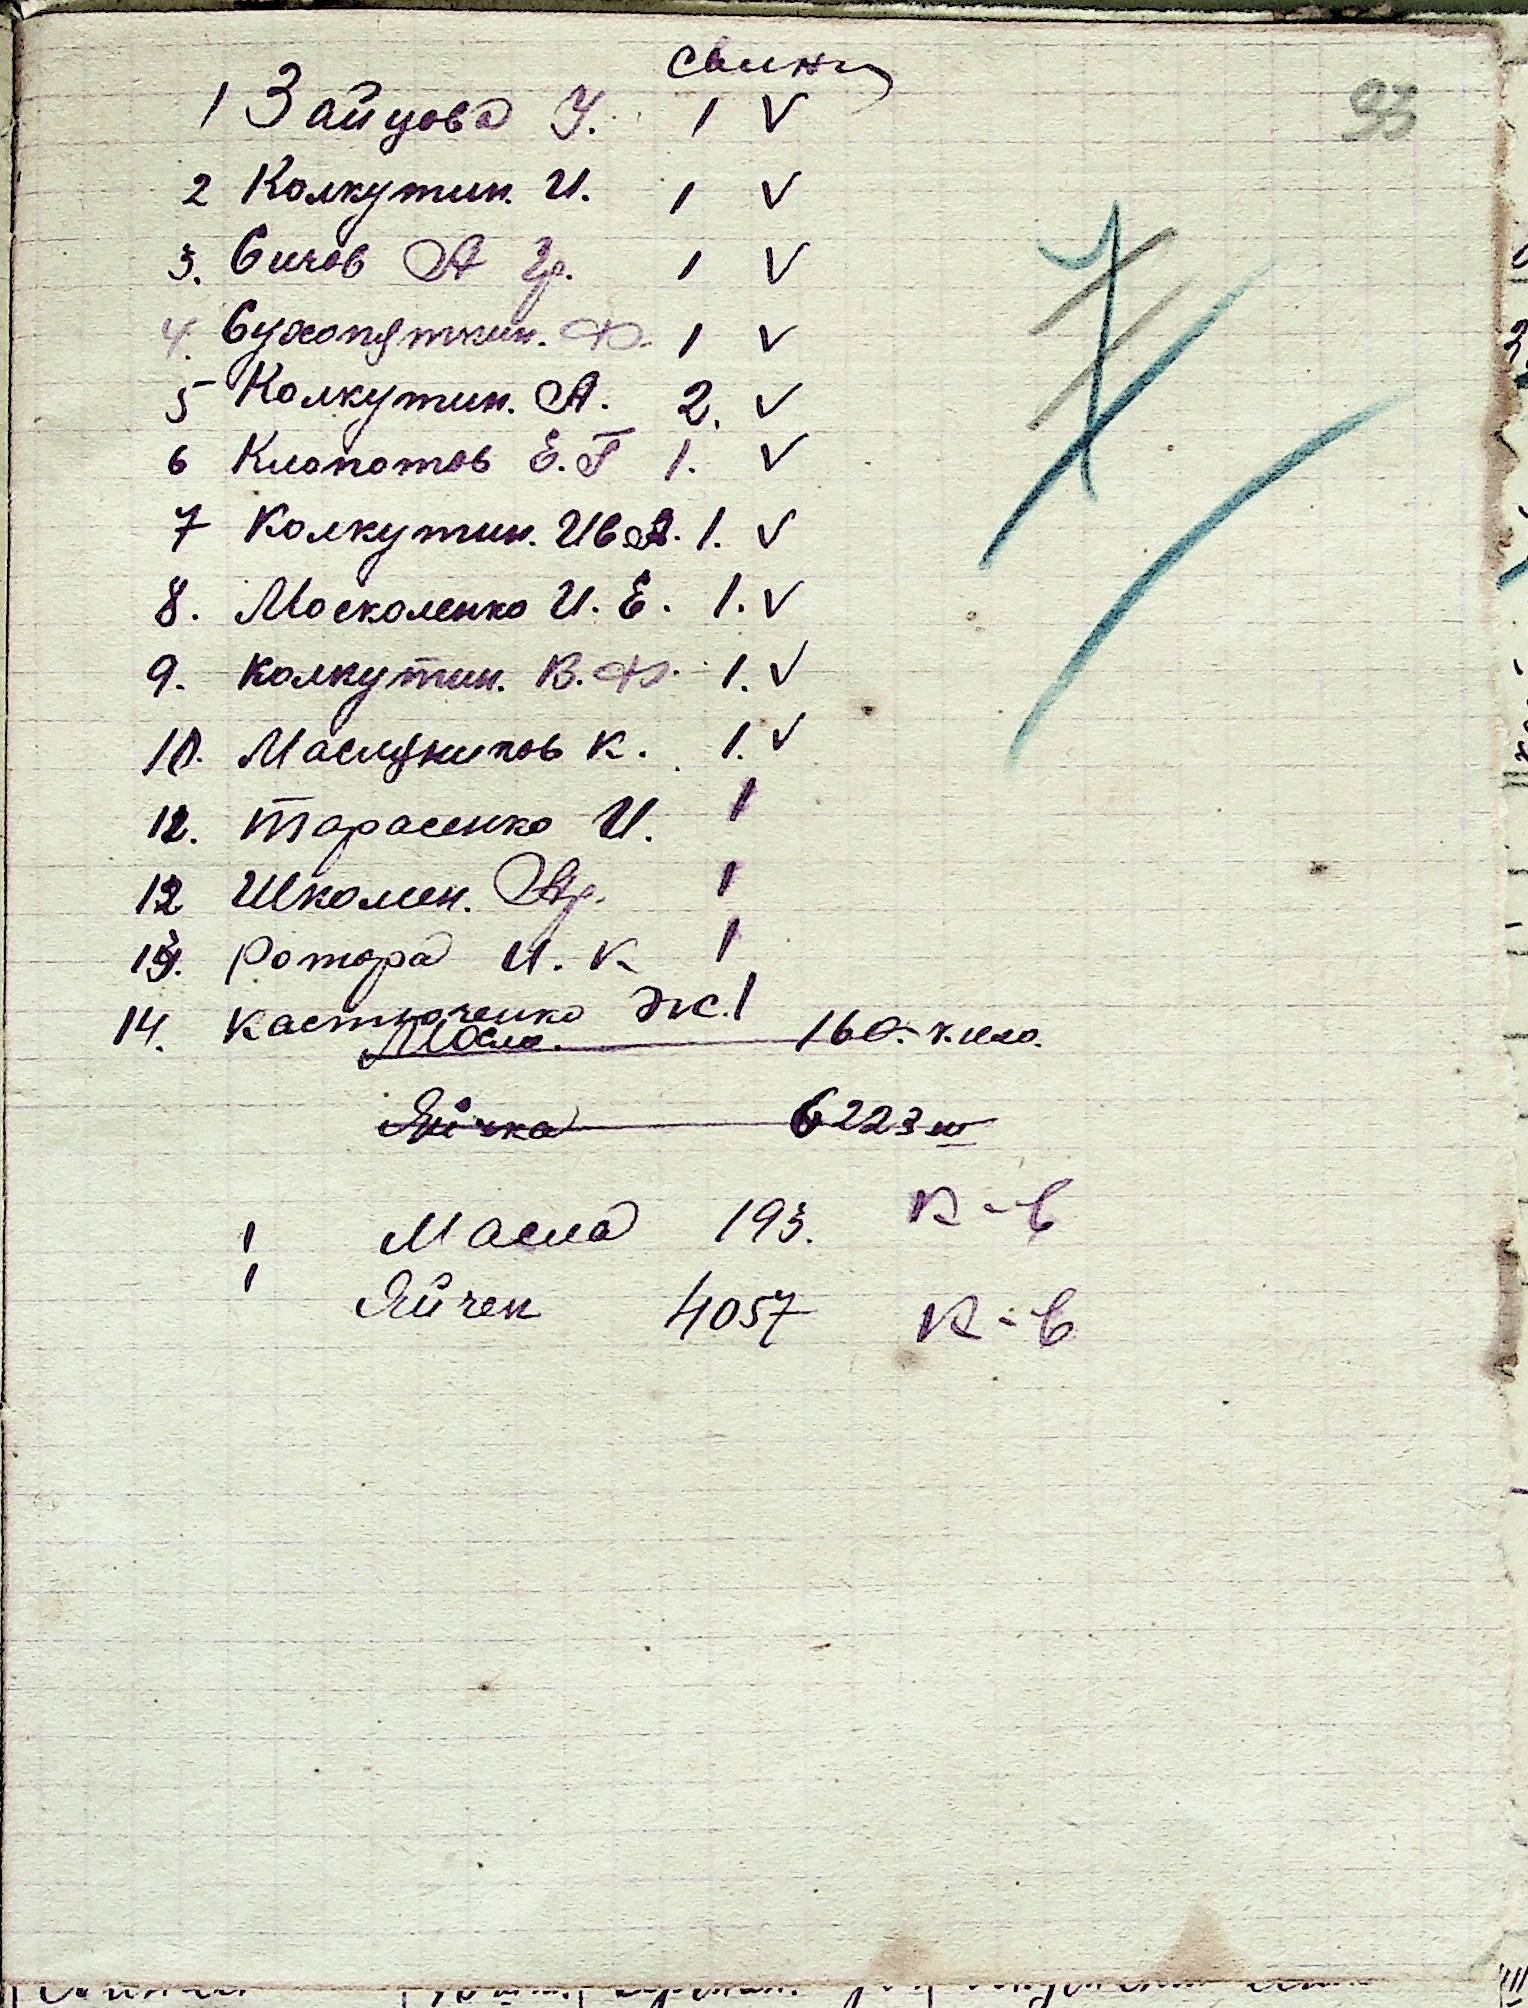 свини
93
1 Зайцова У. 1 V
2 Колкутин. И. 1 V
3. Сичов А Гр. 1 V
4. Сухопяткин. Ф. 1 V
5 Колкутин. А. 2. V
6 Клопотов Е. Г 1. V
7 Колкутин. Ив А. 1. V
8. Москоленко И. Е. 1. V
9. Колкутин. В. Ф. 1. V
10. Маслуников К. 1. V
12. Тарасенко И. 1
12 Школен. Гр. 1
13. Ротора И. К 1
14. Кастюченко 1
Масла. 160. кило.
Яйчка 6223 ш
Масла 193. К-в
Яйчек 4057 К-в